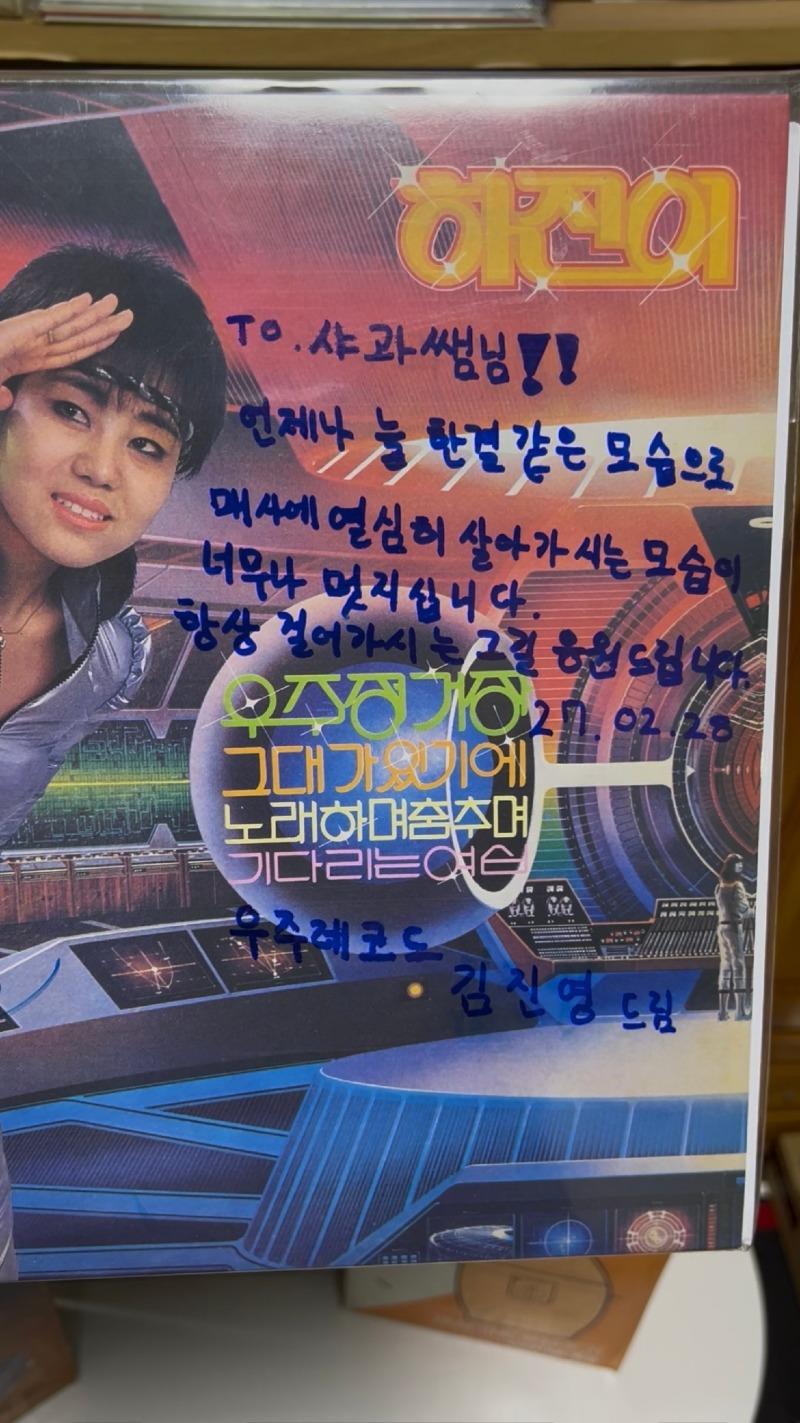 하진이
TO. 샤과쌤님!!
언제나 늘 한결 같은 모습으로
매사에 열심히 살아가시는 모습이
너무나 멋지십니다.
항상 걸어가시는 그길 응원드립니다.
27.02.28
우주정거장
그대가있기에
노래하며춤추며
기다리는여심
우주레코드
김진영 드림